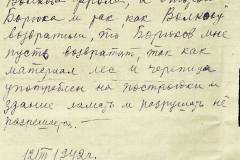 Борюка и так, как Волкову
возвратили, то Борюков мне
пусть возвратят, так как
материал лес и черепица
употреблен на постройки и
здание ламать и разрушать не
разрешается. —
12/III 1942г.